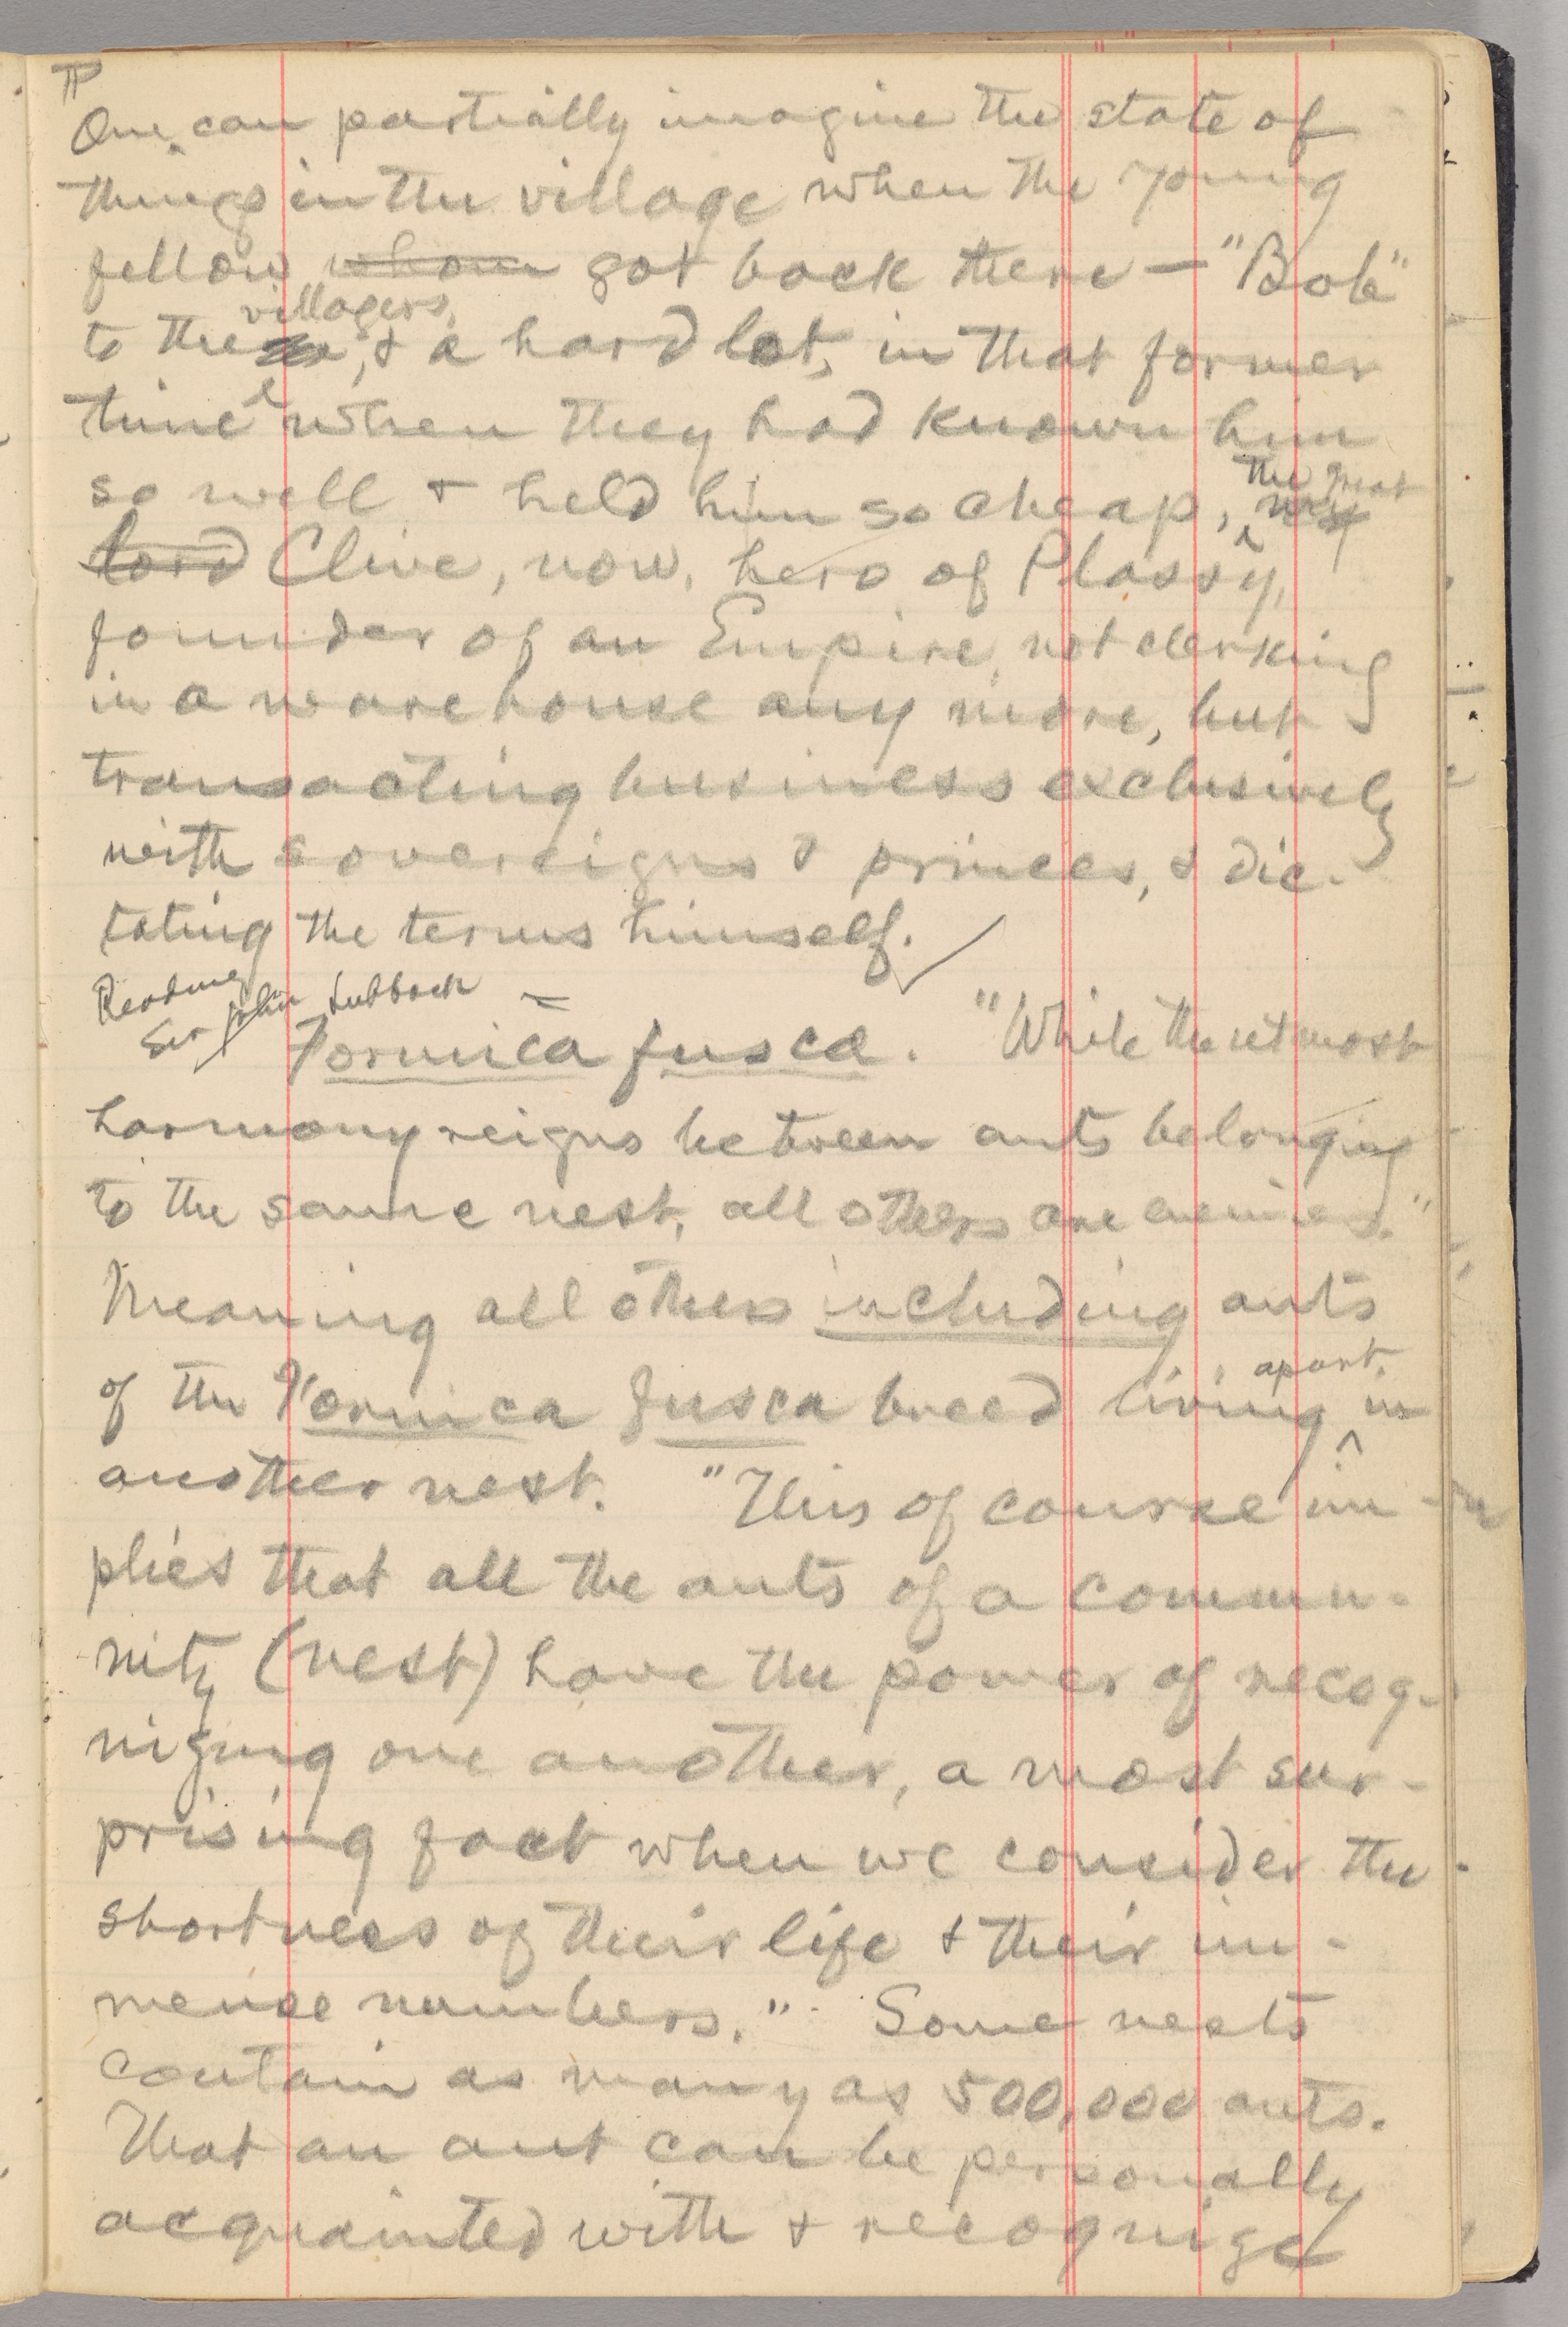 ¶
One can partially imagine the state of
things in the village when the young
fellow whom got back there — "Bob"
villagers,
to the , & a hard lot, in that former
time when they had known him
the great
so well & held him so cheap,
Lord Clive, now, hero of Plassy,
founder of an Empire, not clerking
in a warehouse any more, but
transacting business exclusively
with sovereigns & princes, & dic-
tating the terms himself.
Reading
Sir John Lubbock
Formica fusca. "While the utmost
harmony reigns between ants belonging
to the same nest, all others are enemies."
Meaning all others including ants
apart,
of the Formica fusca breed living ^ in
another nest. "This of course im-
plies that all the ants of a commu-
nity (nest) have the power of recog-
nizing one another, a most sur-
prising fact when we consider the
shortness of their life & their im-
mense numbers." Some nests
contain as many as 500,000 ants.
That an ant can be personally
acquainted with & recognize